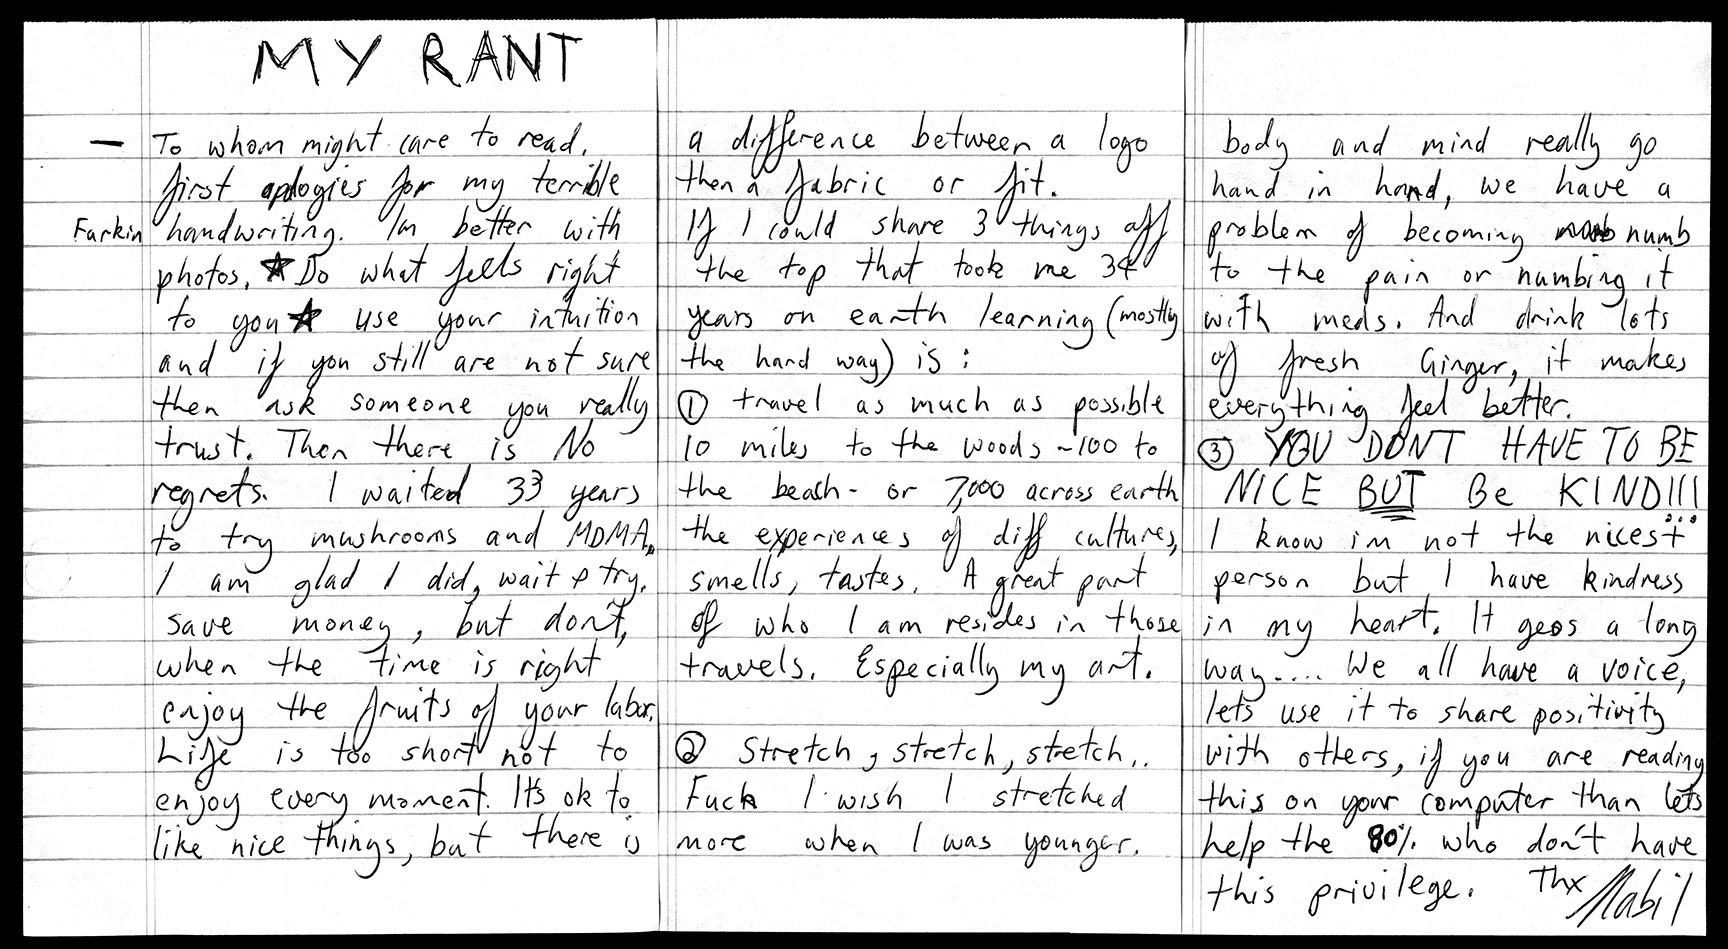 MY RANT
— To whom might care to read,
first apologies for my terrible
Farkin handwriting. Im better with
photos. ★ Do what fells right
to you ★ use your intuition
and if you still are not sure
then ask someone you really
trust. Then there is No
regrets. I waited 33 years
to try mushrooms and MDMA.
I am glad I did, wait & try.
save money, but don't,
when the time is right
enjoy the fruits of your labor.
Life is too short not to
enjoy every moment. It's ok to
like nice things, but there is
a difference between a logo
then a fabric or fit.
If I could share 3 things off
the top that took me 34
years on earth learning (mostly
the hard way) is:
① travel as much as possible
10 miles to the woods ~ 100 to
the beach - or 7,000 across earth
the experiences of diff cultures,
smells, tastes. A great part
of who I am resides in those
travels. Especially my art.
② Stretch, stretch, stretch...
Fuck I wish I stretched
more when I was younger.
body and mind really go
hand in hand, we have a
problem of becoming numb
to the pain or numbing it
with meds. And drink lots
of fresh Ginger, it makes
everything feel better.
③ YOU DONT HAVE TO BE
NICE BUT Be KIND!!!
I know im not the nicest...
person but I have kindness
in my heart. It geos a long
way.... We all have a voice,
lets use it to share positivity
with others, if you are reading
this on your computer than lets
help the 80% who don't have
this privilege. Thx Nabil